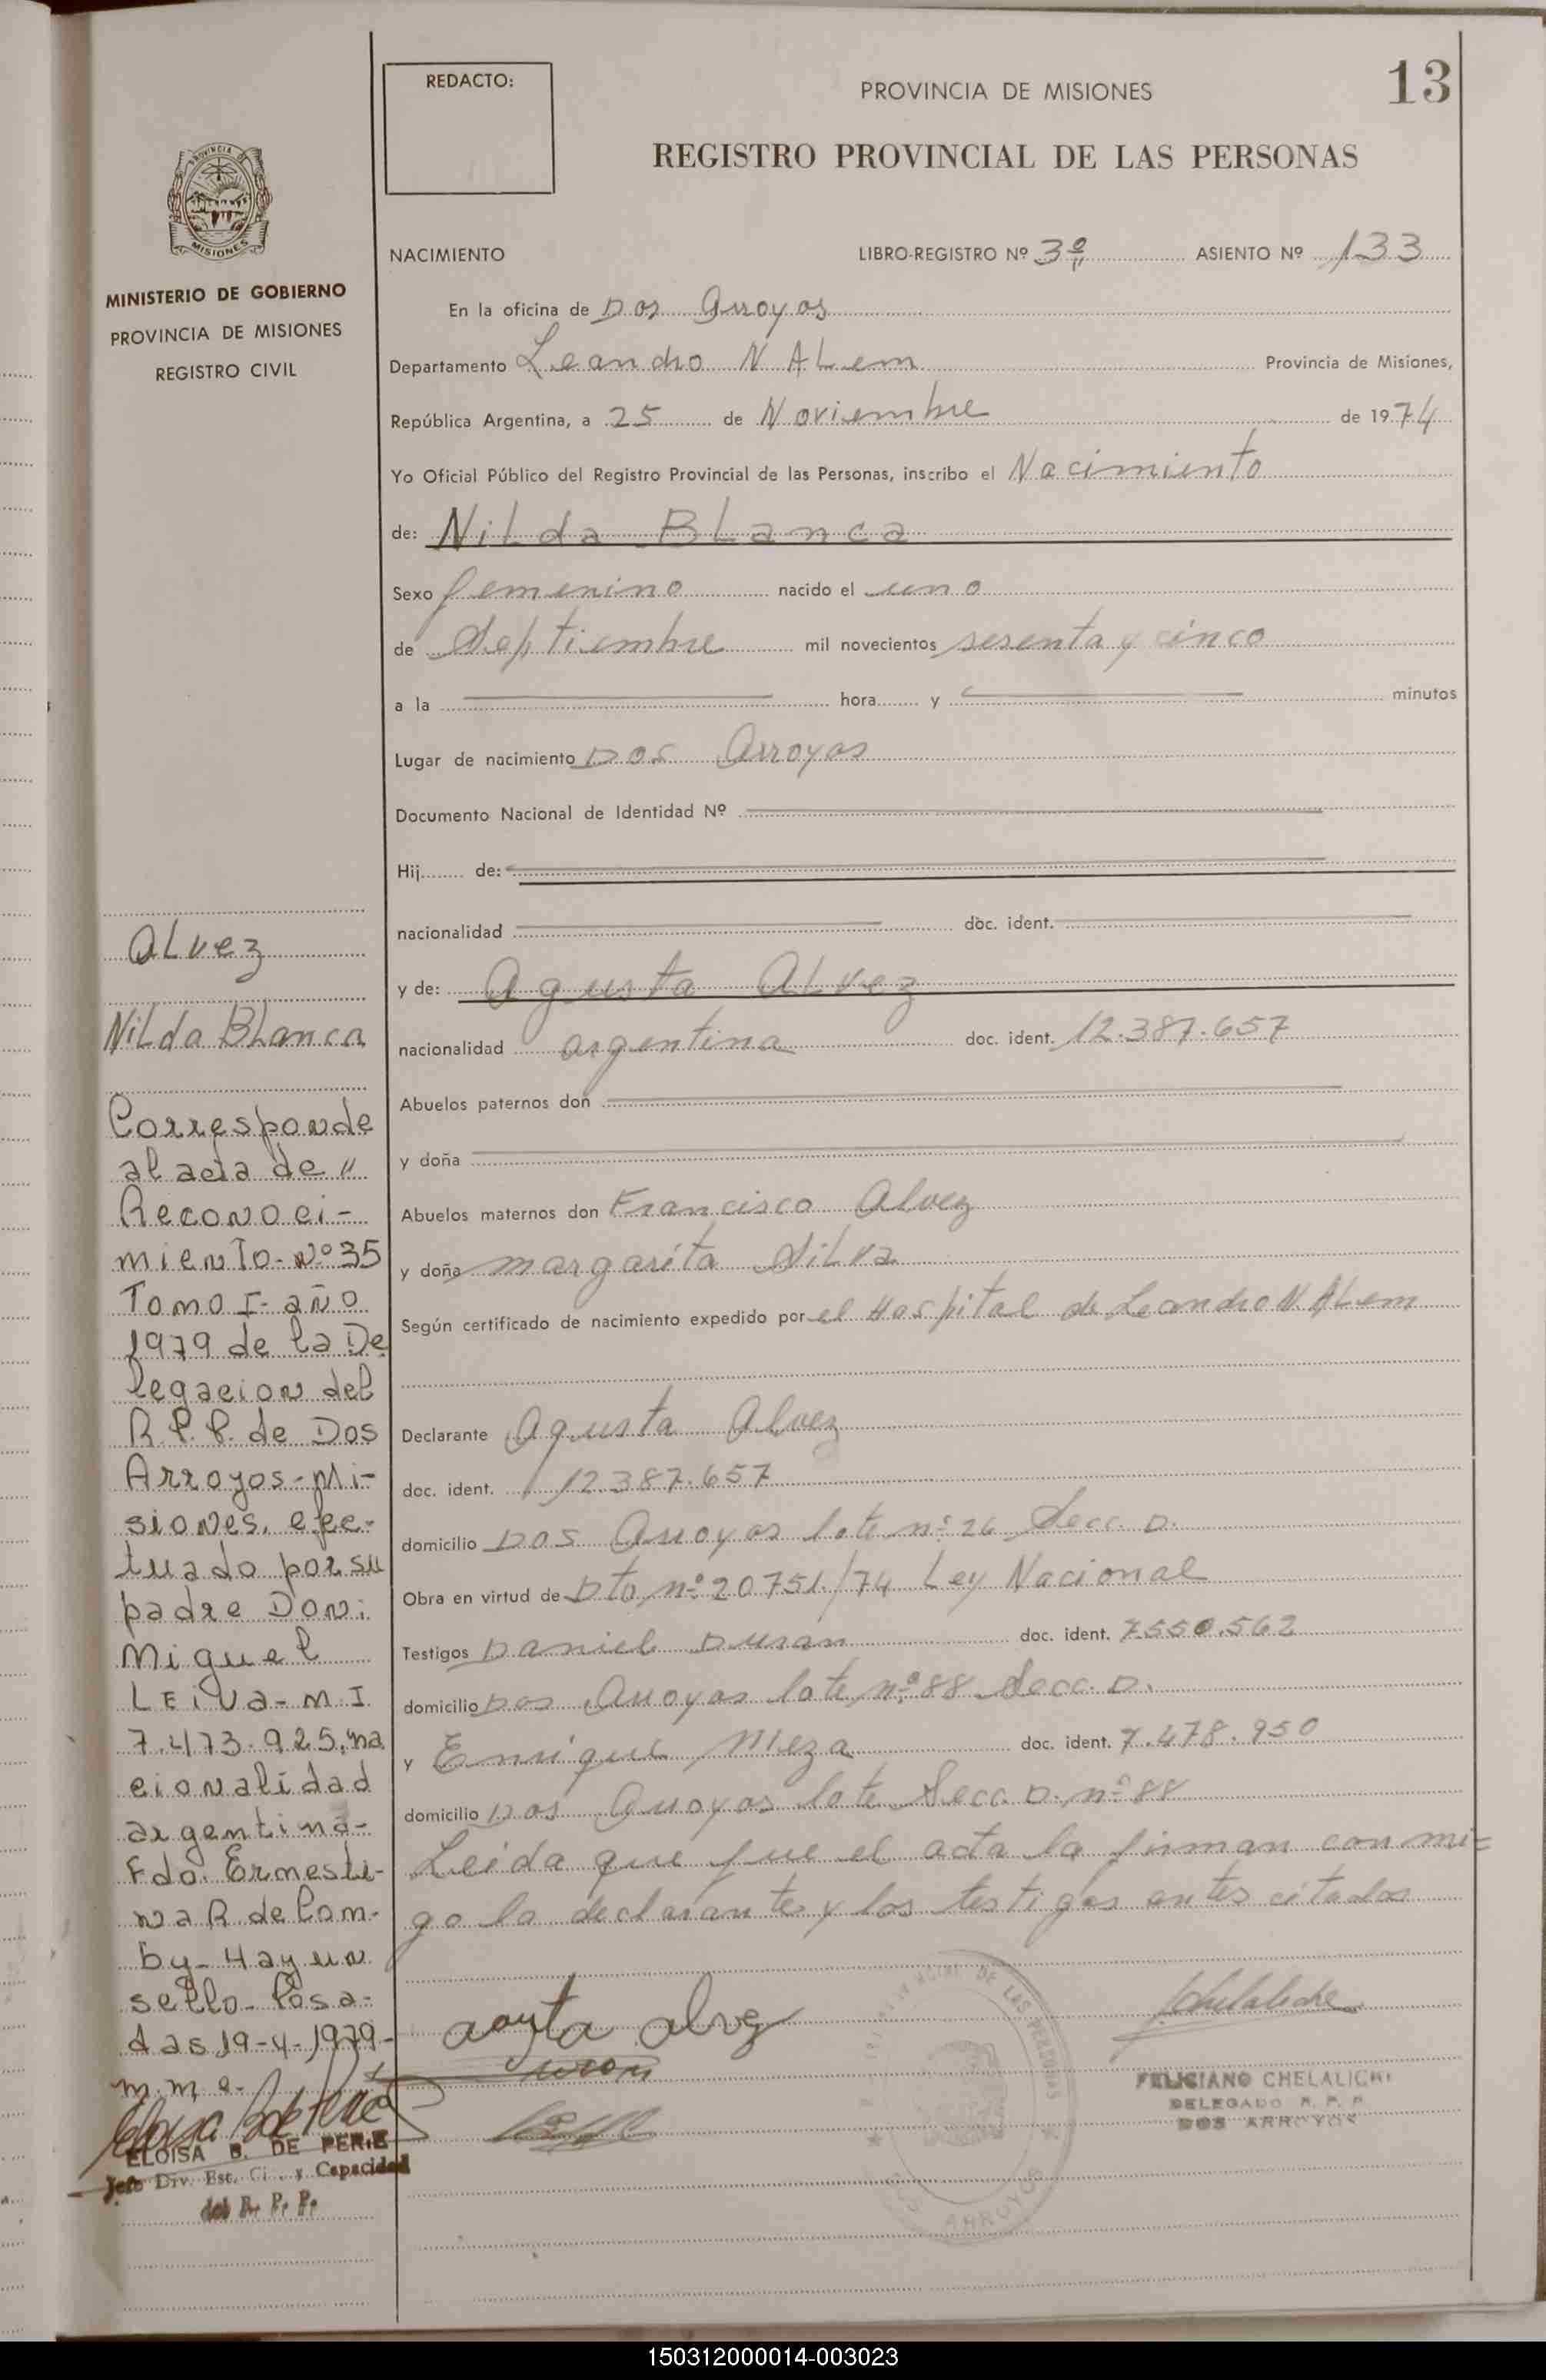 REDACTO:
PROVINCIA DE MISIONES
13
REGISTRO PROVINCIAL DE LAS PERSONAS
PROVINCIA DE
MISIONES
MINISTERIO DE GOBIERNO
PROVINCIA DE MISIONES
REGISTRO CIVIL
NACIMIENTO LIBRO-REGISTRO Nº 3º ASIENTO Nº 133
En la oficina de Dos Arroyos
Departamento Leandro N ALem Provincia de Misiones,
República Argentina, a 25 de Noviembre de 1974
Yo Oficial Público del Registro Provincial de las Personas, inscribo el Nacimiento
de: NiLda BLanca
Sexo femenino nacido el uno
de Septiembre mil novecientos sesenta y cinco
a la hora y minutos
Lugar de nacimiento Dos Arroyos
Documento Nacional de Identidad Nº
Hij de:
nacionalidad doc. ident.
y de: Agusta ALvez
nacionalidad argentina doc. ident. 12.387.657
Abuelos paternos don
y doña
Abuelos maternos don Francisco Alvez
y doña margarita SiLva
Según certificado de nacimiento expedido por el Hospital de Leandro N. ALem
Declarante Agusta Alvez
doc. ident. 12.387.657
domicilio Dos Arroyos lote nº 26 Secc. D.
Obra en virtud de Dto nº 20751/74 Ley Nacional
Testigos Daniel Duran doc. ident. 7.550.562
domicilio Dos Arroyos lote nº 88 Secc. D.
y Enrique Meza doc. ident. 7.478.950
domicilio Dos Arroyos lote Secc. D. nº 88
Leida que fue el acta la firman conmi=
go la declarante y los testigos antes citados
agusta alvez
DE LAS PERSONAS
DOS ARROYOS
FELICIANO CHELALICHE
DELEGADO R. P. P.
DOS ARROYOS
ALvez
NiLda BLanca
Corresponde
al acta de "
Reconoci-
miento- Nº 35
Tomo I- año
1979 de la De
legacion del
R.P.P. de Dos
Arroyos- Mi-
siones, efec-
tuado por su
padre Don:
Miguel
LEiVa- M I
7.473.925, na
cionalidad
argentina-
Fdo. Ernesti-
na R de Com-
by- Hay un
sello- Posa-
das 19-4-1979-
m.m.e.-
ELOISA B. DE PEREZ
Jefe Div. Est. Ci. y Capacidad
del R. P. P.
150312000014-003023